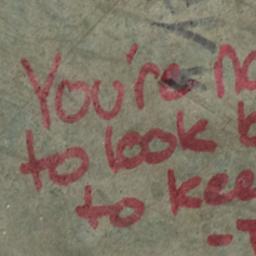 You're no
to look b
to kee
-T